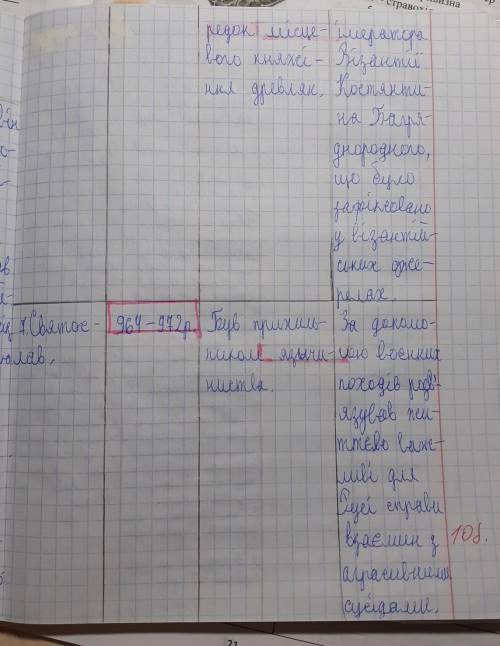 редок місце-
вого княжі-
ння древлян.
імператора
Візантії
Костянти-
на Багря-
нородного,
що було
зафіксовано
у візантій-
ських дже-
релах.
7. Святос-
лав.
964-972р.
Був прихиль-
ником язични-
ництва.
За допомо-
гою воєнних
походів розв'-
язував жи-
ттєво важ-
ливі для
Русі справи
взаємин з
агрсивними
сусідами.
10б.